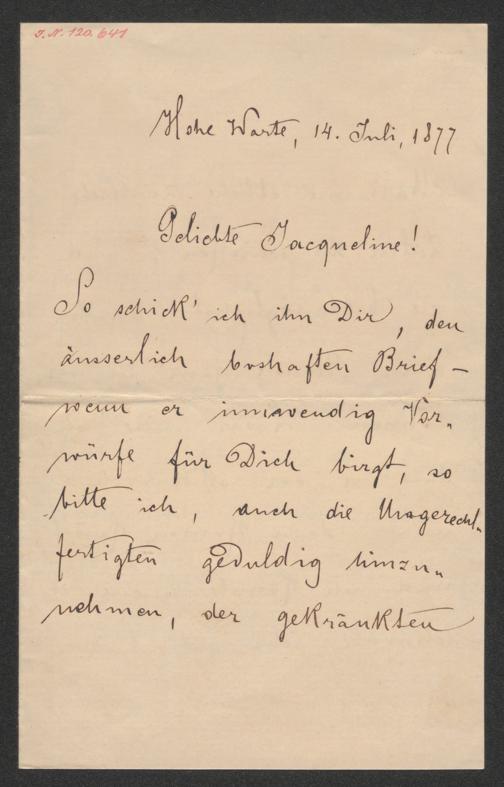 J.N. 120.641
Hohe Warte, 14. Juli, 1877
Geliebte Jacqueline!
So schick' ich ihn Dir, den
äusserlich boshaften Brief –
wenn er innwendig Vor„
würfe für Dich birgt, so
bitte ich, auch die Ungerecht„
fertigten geduldig hinzu„
nehmen, der gekränkten